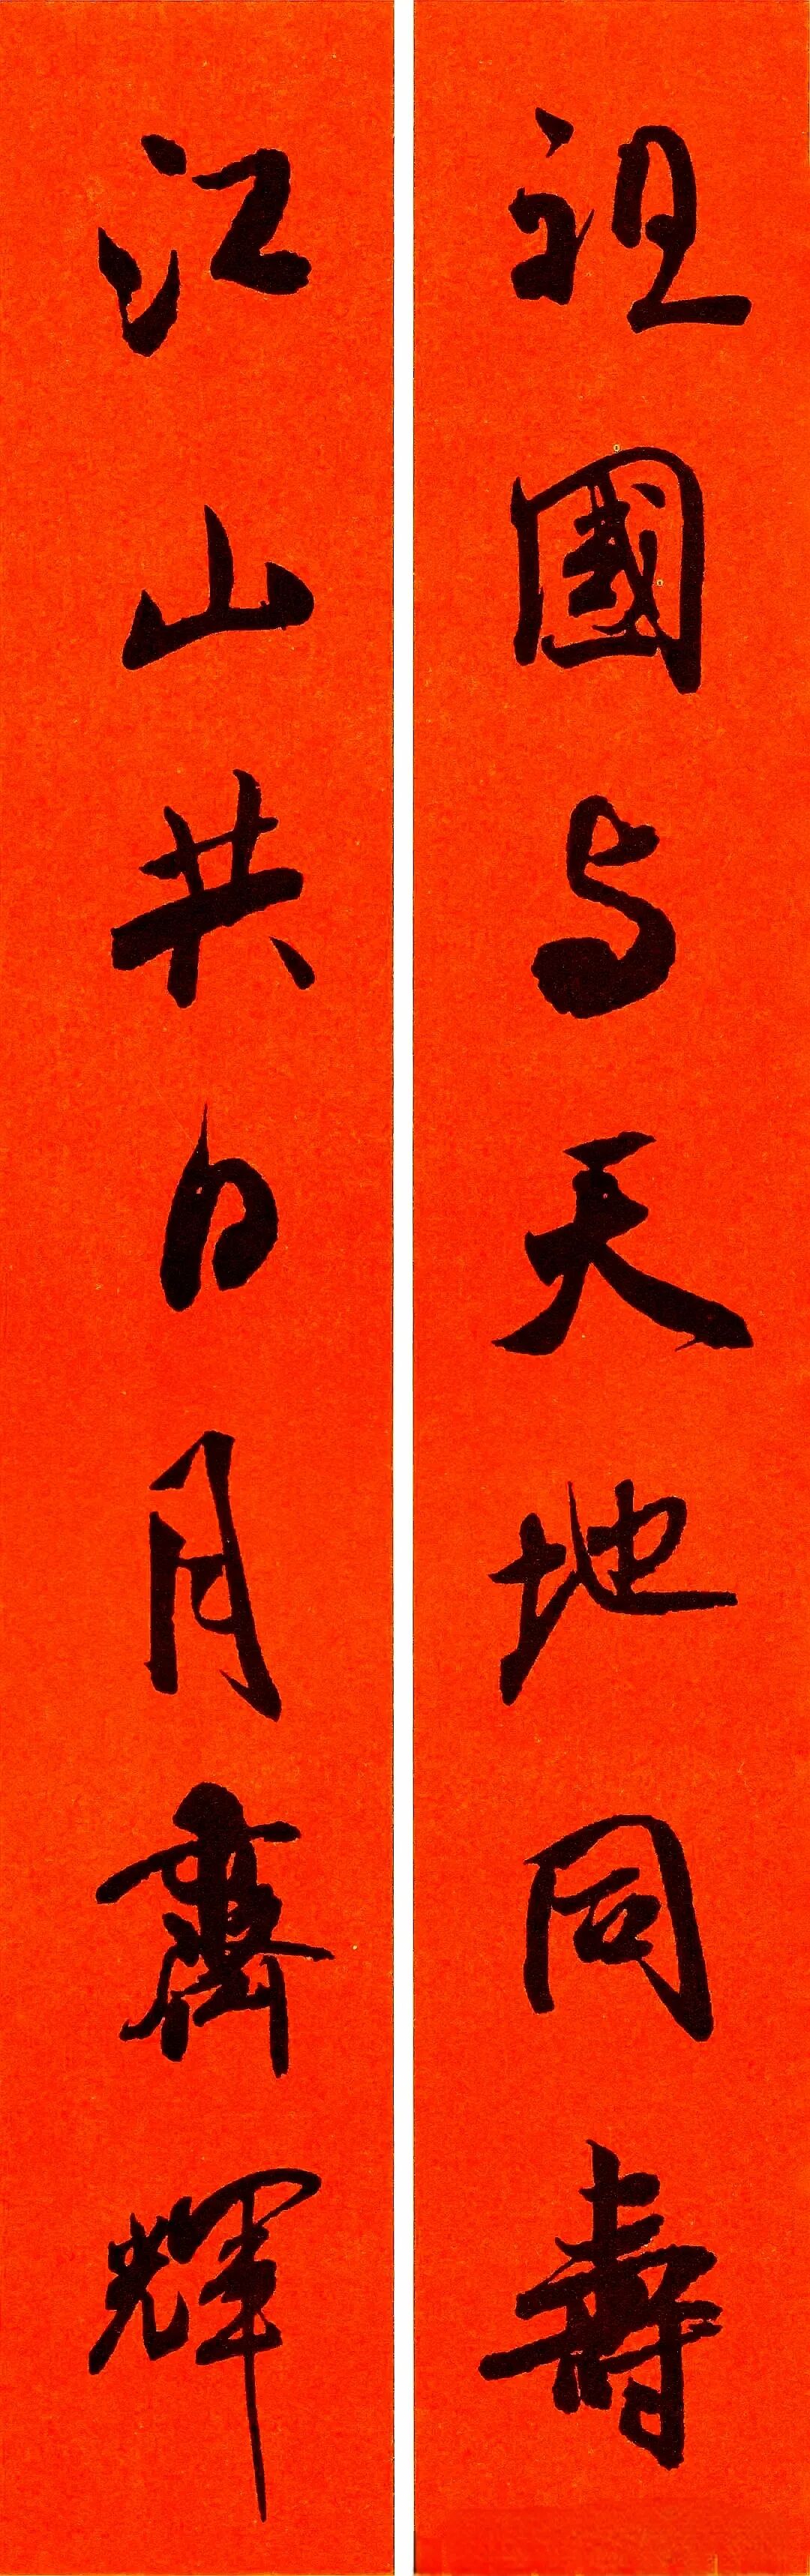 祖國与天地同壽
江山共日月齊輝